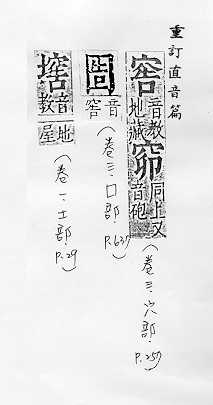 重訂直音篇
窖音教地藏窌同上又音砲
(卷三.穴部.P.257)
音窖
(卷三.口部.P.637)
音教地屋
(卷一.土部.P.29)